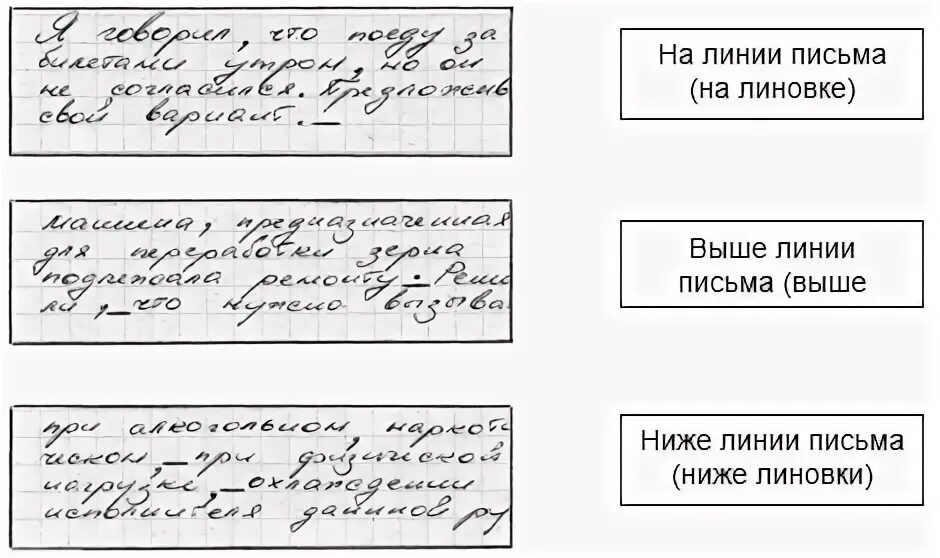 Я говорил, что поеду за
билетами утром, но он
не согласился. Предложив
свой вариант.
На линии письма
(на линовке)
машина, предназначенная
для переработки зерна
подлежала ремонту. Реши
ли, что нужно вызыва
Выше линии
письма (выше
при алкогольном, наркоти
ческом, при физической
нагрузке, охлаждении
исполнителя данной ру
Ниже линии письма
(ниже линовки)